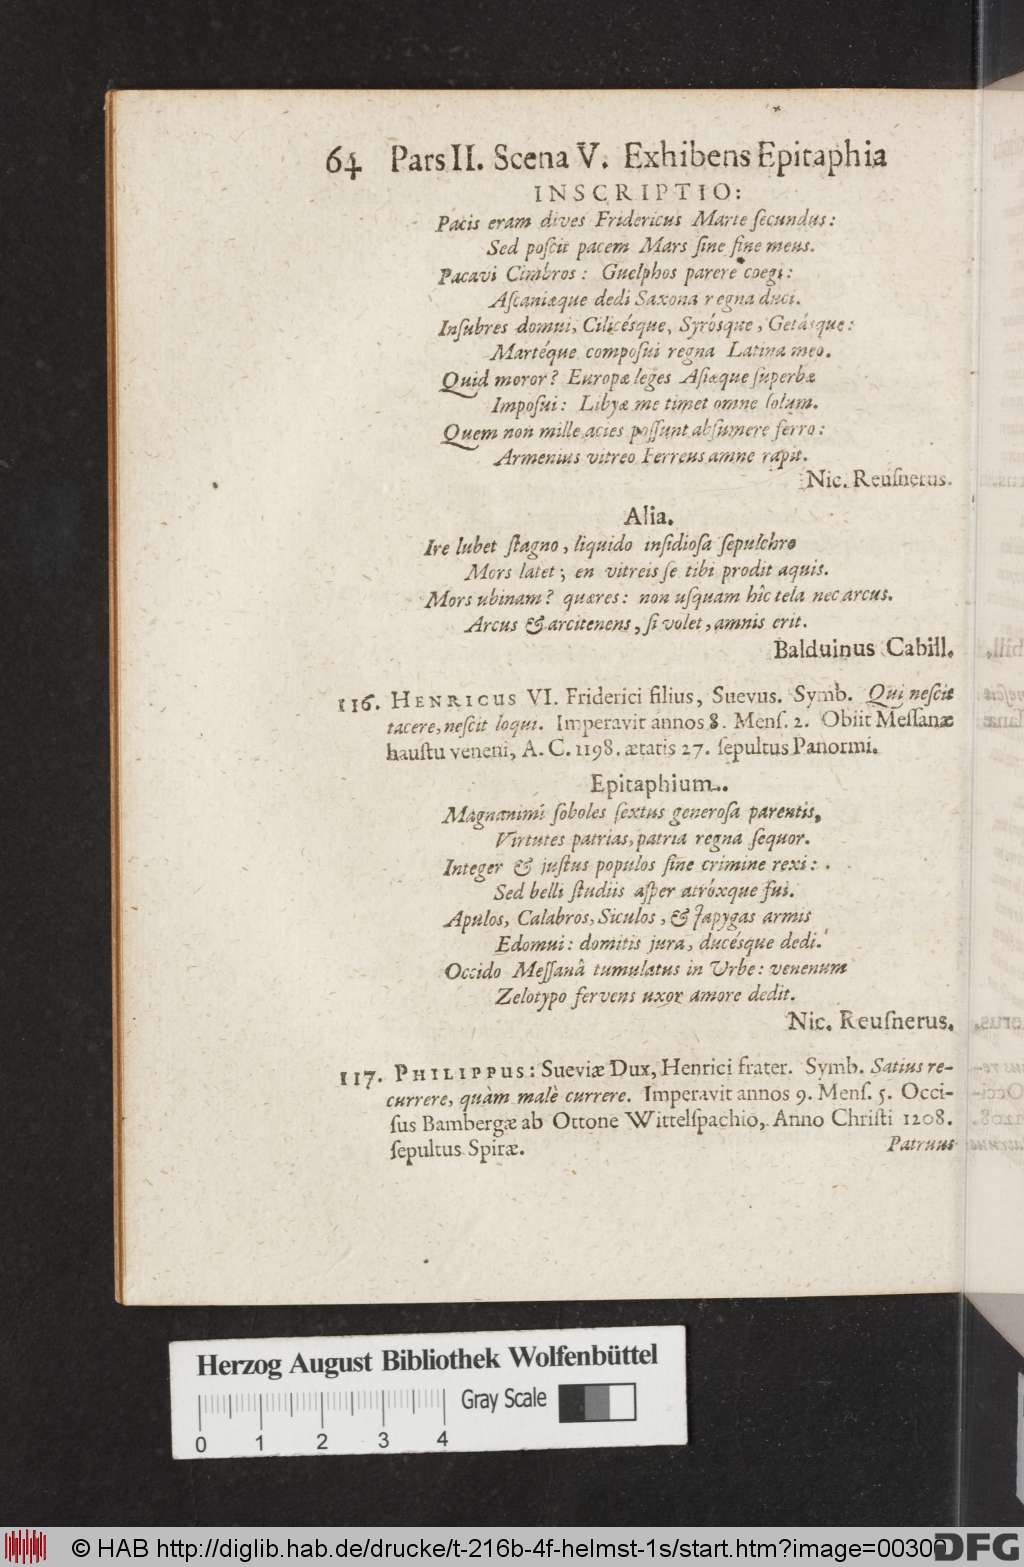 64 Pars II. Scena V. Exhibens Epitaphia
INSCRIPTIO:
Pacis eram dives Fridericus Marte ſecundus:
Sed poſcit pacem Mars ſine fine meus.
Pacavi Cimbros: Guelphos parere coegi:
Aſcaniæque dedi Saxona regna duci.
Inſubres domui, Cilicésque, Syrósque, Getásque:
Martéque compoſui regna Latina meo.
Quid moror? Europæ leges Aſiæque ſuperbæ
Impoſui: Libyæ me timet omne ſolum.
Quem non mille acies poſſunt abſumere ferro:
Armenius vitreo Ferreus amne rapit.
Nic. Reuſnerus.
Alia.
Ire lubet ſtagno, liquido inſidioſa ſepulchro
Mors latet; en vitreis ſe tibi prodit aquis.
Mors ubinam? quæres: non uſquam hîc tela nec arcus.
Arcus & arcitenens, ſi volet, amnis erit.
Balduinus Cabill.
116. HENRICUS VI. Friderici filius, Suevus. Symb. Qui neſcit
tacere, neſcit loqui. Imperavit annos 8. Menſ. 2. Obiit Meſſanæ
hauſtu veneni, A. C. 1198. ætatis 27. ſepultus Panormi.
Epitaphium.
Magnanimi ſoboles ſextus generoſa parentis,
Virtutes patrias, patria regna ſequor.
Integer & juſtus populos ſine crimine rexi:
Sed belli ſtudiis aſper atróxque fui.
Apulos, Calabros, Siculos, & Japygas armis
Edomui: domitis jura, ducésque dedi.
Occido Meſſanâ tumulatus in Urbe: venenum
Zelotypo fervens uxor amore dedit.
Nic. Reuſnerus.
117. PHILIPPUS: Sueviæ Dux, Henrici frater. Symb. Satius re-
currere, quàm malè currere. Imperavit annos 9. Menſ. 5. Occi-
ſus Bambergæ ab Ottone Wittelſpachio, Anno Chriſti 1208.
ſepultus Spiræ.
Patruus
Herzog August Bibliothek Wolfenbüttel
Gray Scale
0 1 2 3 4
© HAB http://diglib.hab.de/drucke/t-216b-4f-helmst-1s/start.htm?image=00300
DFG